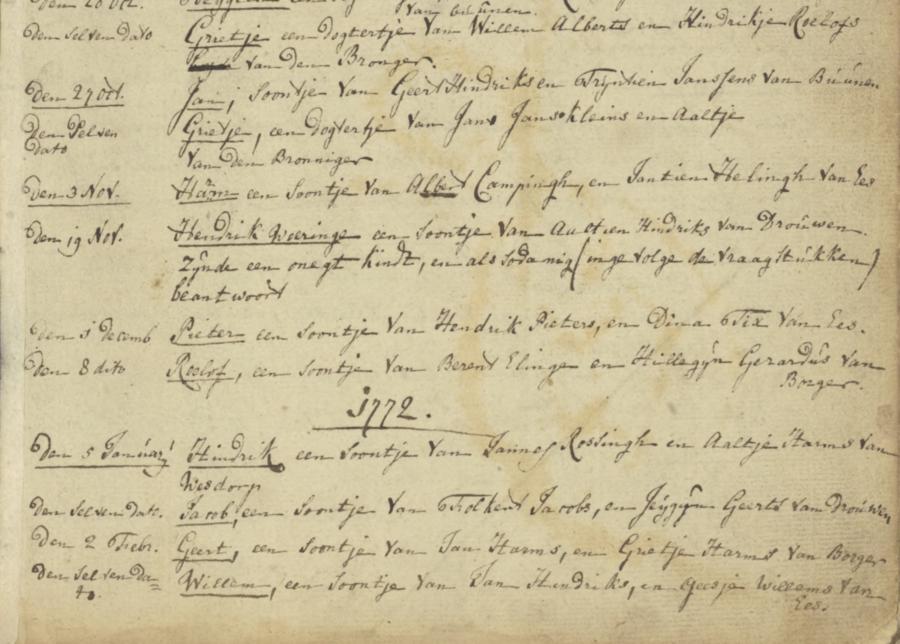 den 20 Oct.
van buinen.
den selven dato Grietje een dogtertje van Willem Alberts en Hindrikje Roelofs
van den Bronger.
den 27 Oct. Jan, soontje van Geert Hindriks en Trijntien Janssens van Buinen
den selven dato Grietje, een dogtertje van Jans Jans Kleins en Aaltje
van den Bronniger
den 3 Nov. Harm een soontje van Albert Campingh, en Jantien Helingh van Ees
den 19 Nov. Hendrik Weeringe een soontje van Aaltien Hindriks van Drouwen
zijnde een onegt kindt, en als sodanig (ingevolge de vraagstukken)
beantwoort
den 1 Decemb Pieter een soontje van Hendrik Pieters, en Dina Tix van Ees.
den 8 dito Roelof, een soontje van Berent Elinge en Hillegijn Gerardus van
Borger.
1772.
den 5 Januarj Hindrik een soontje van Jannes Rossingh en Aaltje Harms van
Wesdorp
den selven dato. Jacob, een soontje van Folkert Jacobs, en Jeÿgijn Geerts van Drouwen
den 2 Febr. Geert, een soontje van Jan Harms, en Grietje Harms van Borger
den selven da= Willem, een soontje van Jan Hindriks, en Geesje Willems van
to. Ees.